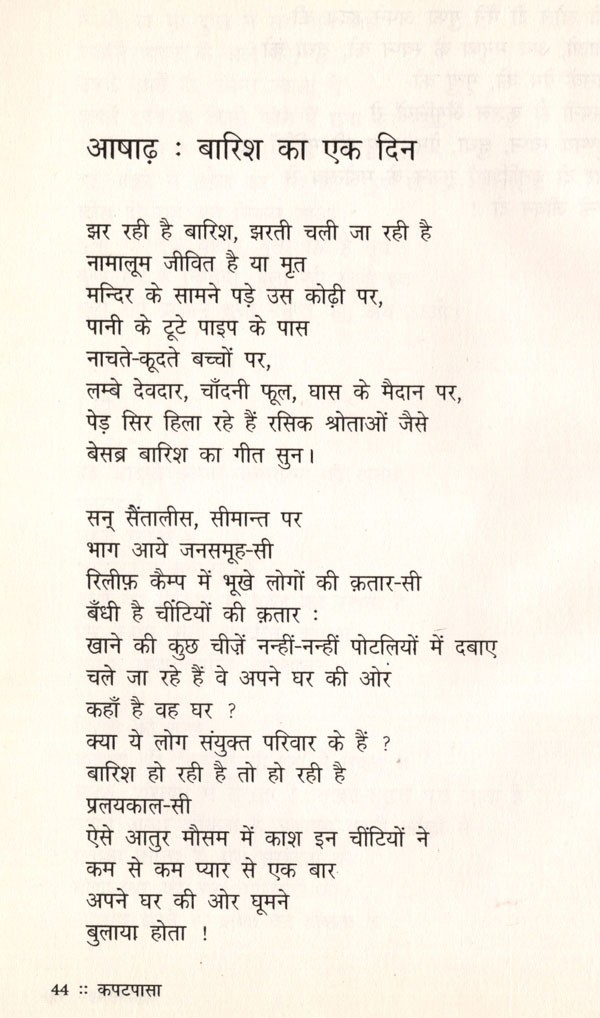 आषाढ़ : बारिश का एक दिन
झर रही है बारिश, झरती चली जा रही है
नामालूम जीवित है या मृत
मन्दिर के सामने पड़े उस कोढ़ी पर,
पानी के टूटे पाइप के पास
नाचते-कूदते बच्चों पर,
लम्बे देवदार, चाँदनी फूल, घास के मैदान पर,
पेड़ सिर हिला रहे हैं रसिक श्रोताओं जैसे
बेसब्र बारिश का गीत सुन।
सन् सैंतालीस, सीमान्त पर
भाग आये जनसमूह-सी
रिलीफ़ कैम्प में भूखे लोगों की क़तार-सी
बँधी है चींटियों की क़तार :
खाने की कुछ चीज़ें नन्हीं-नन्हीं पोटलियों में दबाए
चले जा रहे हैं वे अपने घर की ओर
कहाँ है वह घर ?
क्या ये लोग संयुक्त परिवार के हैं ?
बारिश हो रही है तो हो रही है
प्रलयकाल-सी
ऐसे आतुर मौसम में काश इन चींटियों ने
कम से कम प्यार से एक बार
अपने घर की ओर घूमने
बुलाया होता !
44 :: कपटपासा